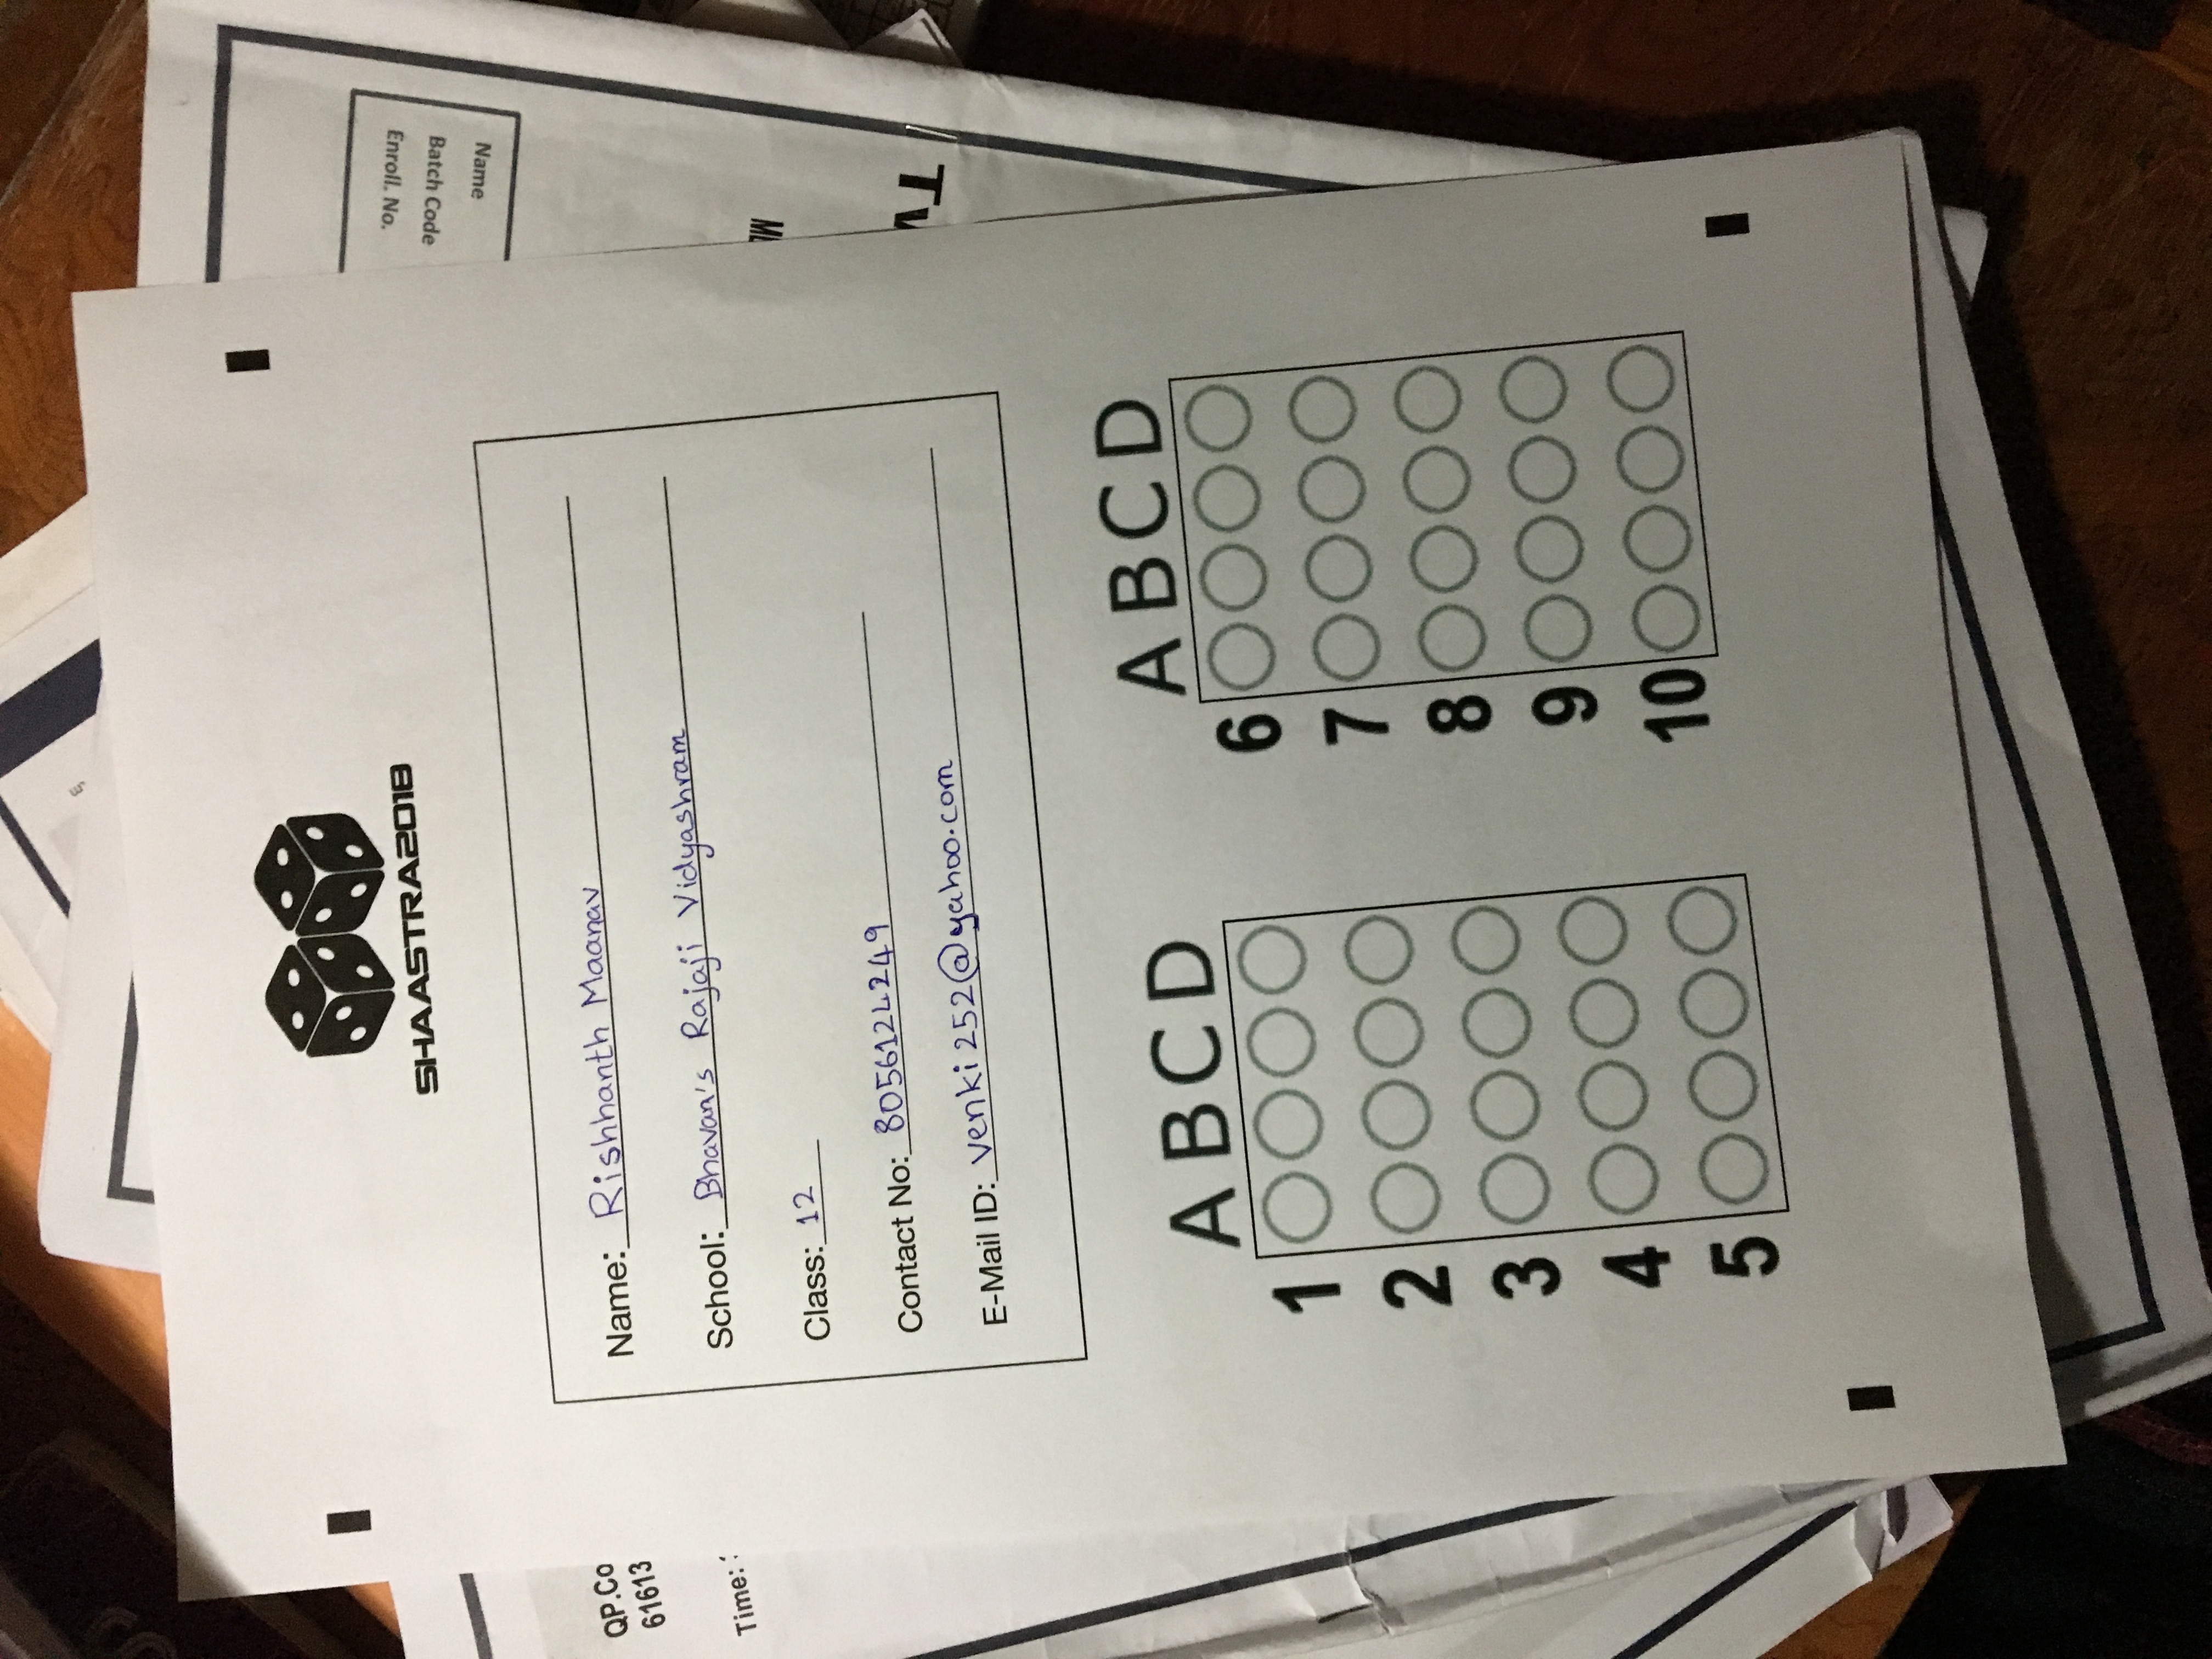 SHAASTRA2018
Name: Rishhanth Maanav
School: Bhavan's Rajaji Vidyashram
Class: 12
Contact No: 8056124249
E-Mail ID: venki252@yahoo.com
A B C D
1
2
3
4
5
A B C D
6
7
8
9
10
QP.Co
61613
Time:
Name
Batch Code
Enroll. No.